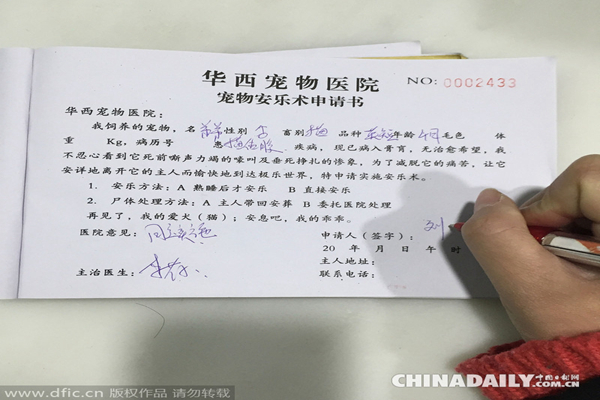 华西宠物医院
NO: 0002433
宠物安乐术申请书
华西宠物医院:
我饲养的宠物,名 性别 畜别 猫 品种 年龄 毛色 体
重 Kg,病历号 患 疾病,现已病入膏肓,无治愈希望,我
不忍心看到它死前嘶声力竭的嚎叫及垂死挣扎的惨象,为了减脱它的痛苦,让它
安详地离开它的主人而愉快地到达极乐世界,特申请实施安乐术。
1. 安乐方法:A 熟睡后才安乐 B 直接安乐
2. 尸体处理方法:A 主人带回安葬 B 委托医院处理
再见了,我的爱犬(猫);安息吧,我的乖乖。
医院意见:同意实施 申请人(签字): 刘
20 年 月 日 午 时
主治医生: 主人地址:
联系电话:
www.dfic.cn 版权作品 请勿转载
CHINADAILY.com.cn
中国日报网